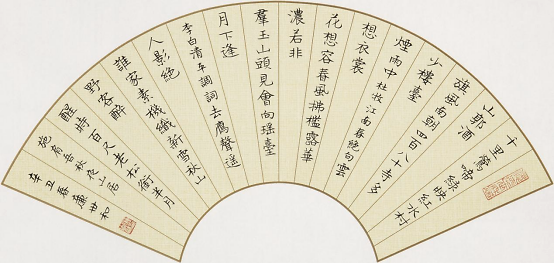 千里鶯啼綠映紅水村
山郭酒
旗風南朝四百八十寺多
少樓臺
煙雨中杜牧江南春絕句雲
想衣裳
花想容春風拂檻露華
濃若非
羣玉山頭見會向瑤臺
月下逢
李白清平調詞去雁聲遙
人影絕
誰家素機織新雪秋山
野客醉
醒時百尺老松銜半月
施肩吾秋夜山居
辛丑春盧世和